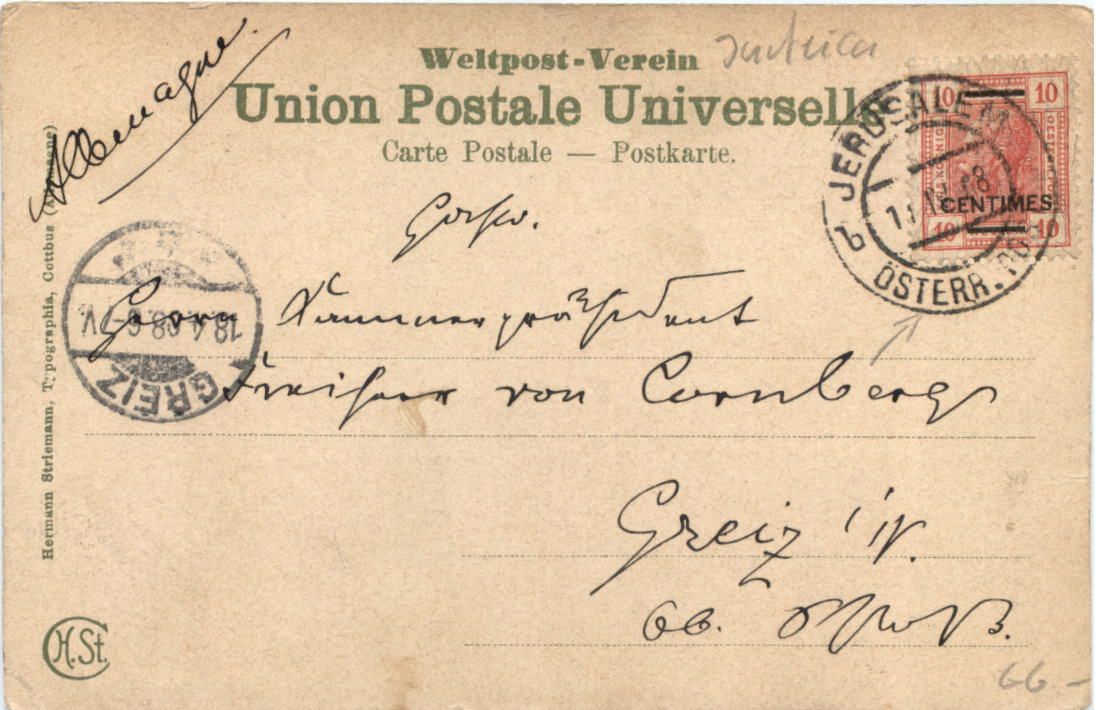 Allemagne.
Weltpost-Verein
Union Postale Universelle
Carte Postale — Postkarte.
JERUSALEM
ÖSTERR. POST
b
10 10
CENTIMES
10 10
Herrn Kammerpräsident
Freiherr von Cornberg
Greiz i/V.
GREIZ
18.4.08.6-7V.
Hermann Striemann, Typographia, Cottbus
H.St.
66 -